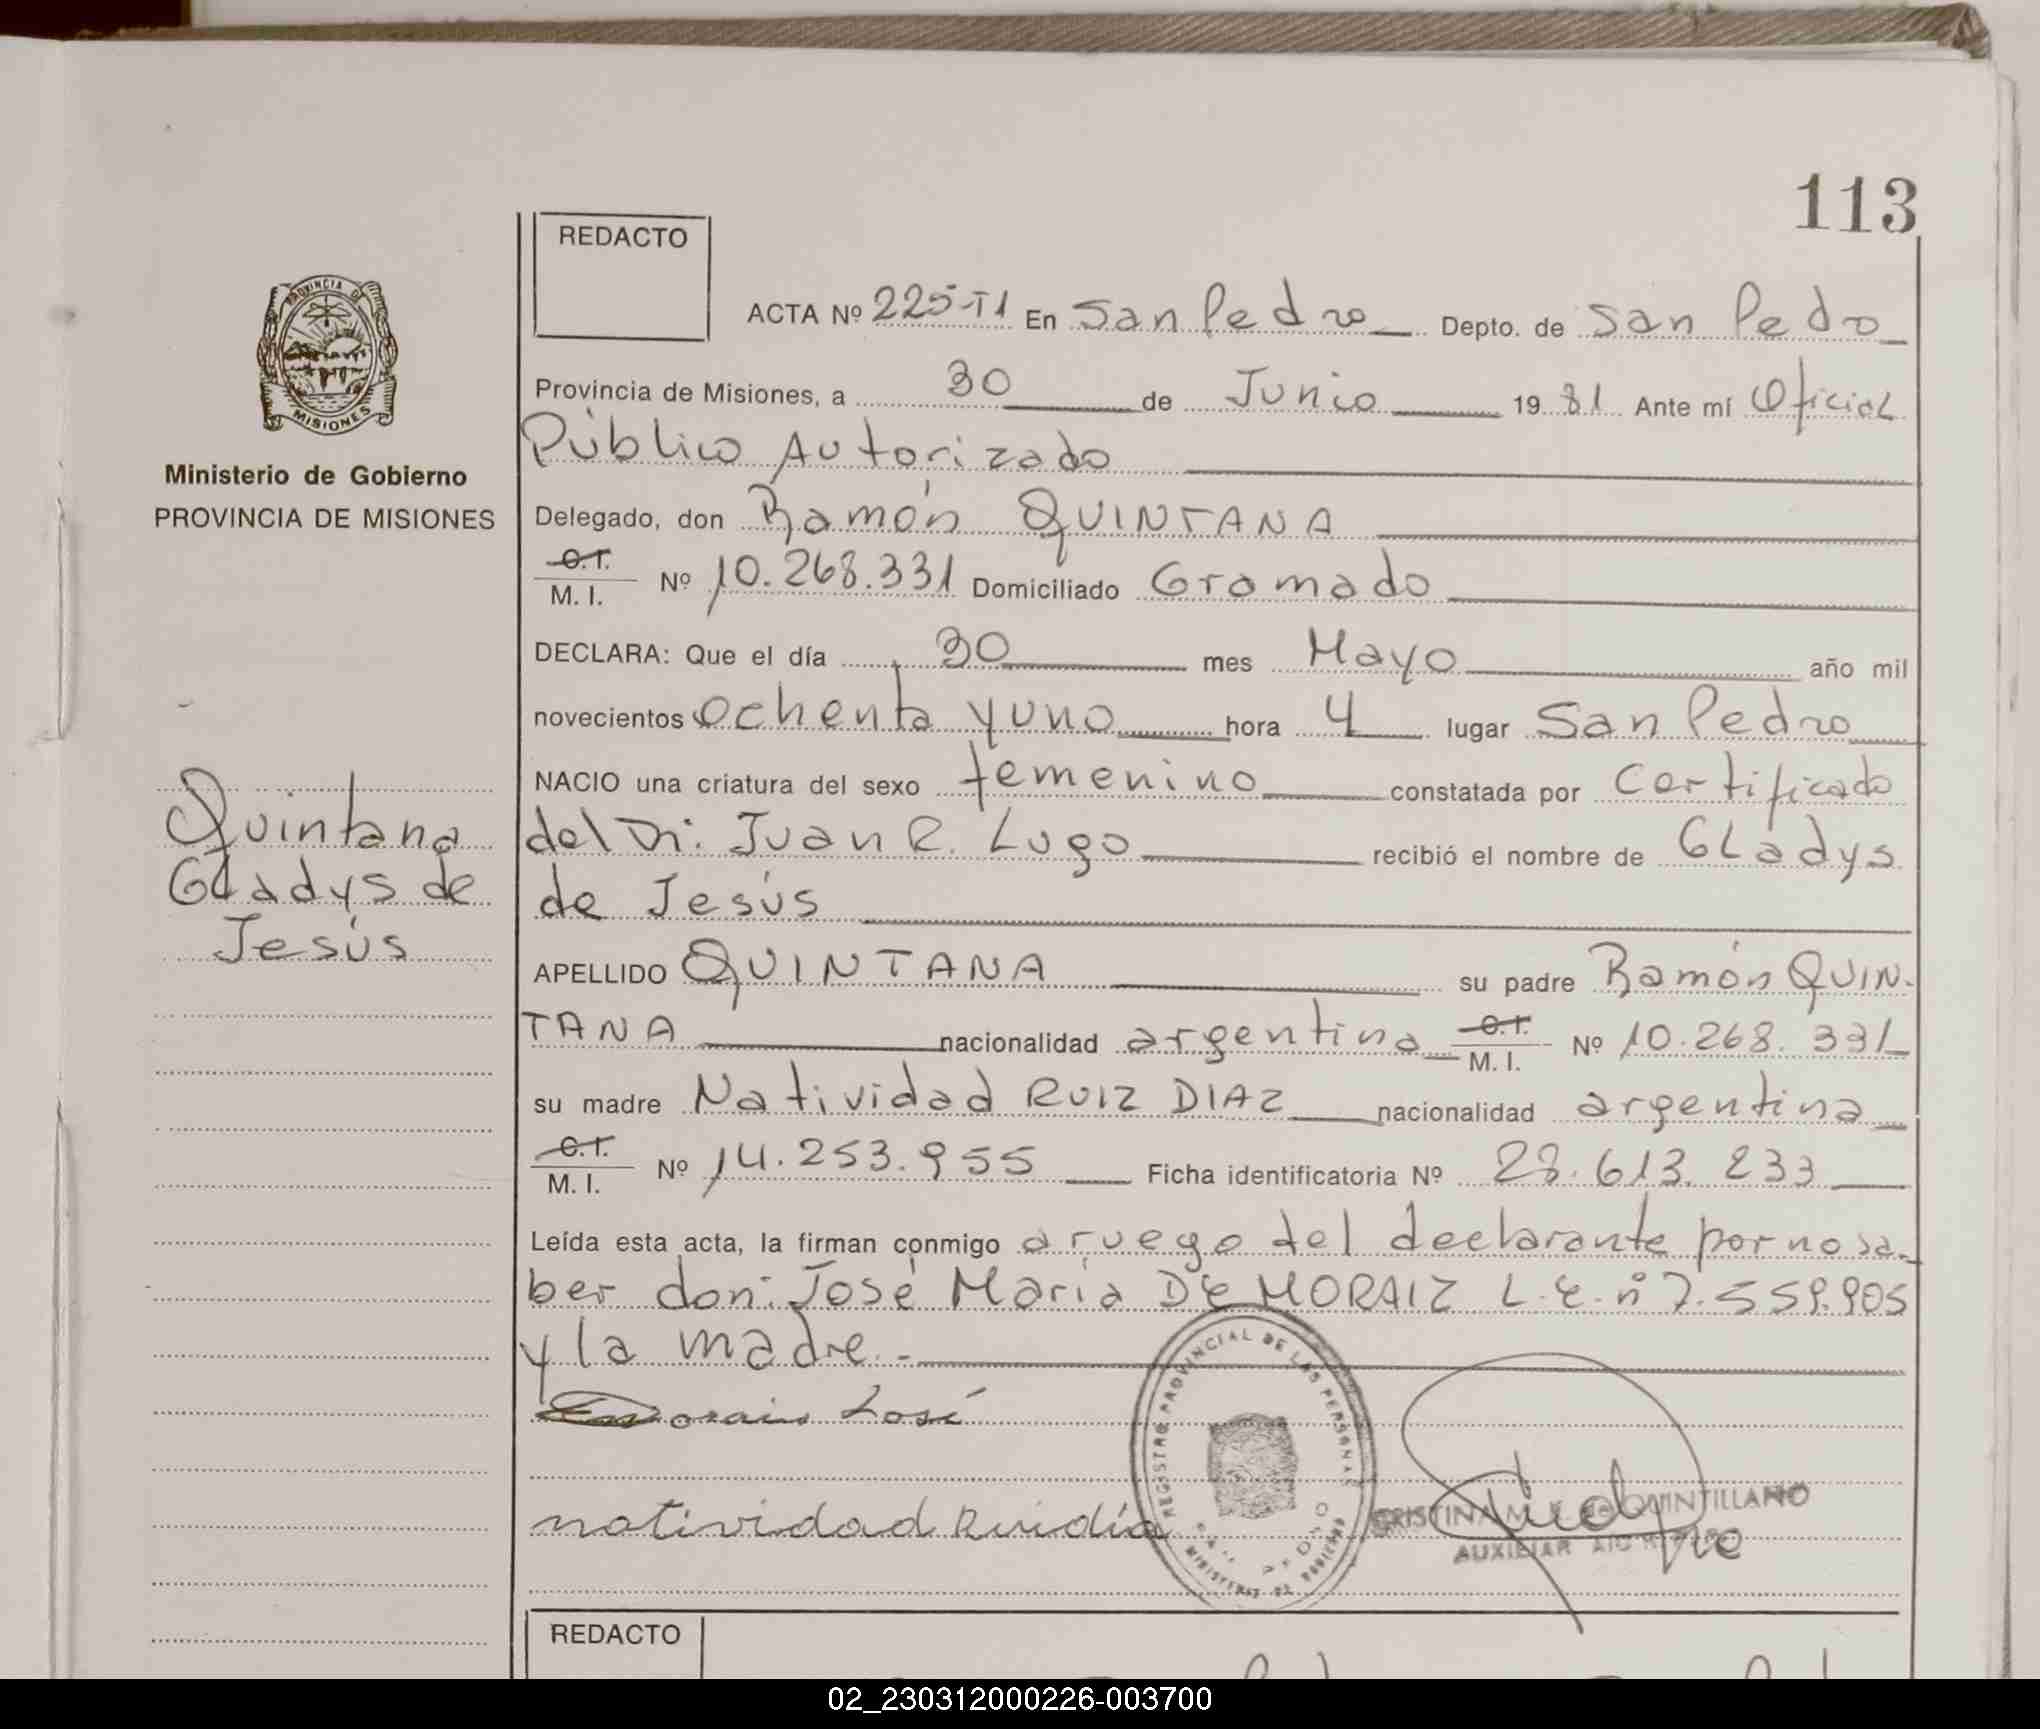 113
REDACTO
ACTA Nº 225-T1 En San Pedro Depto. de San Pedro
Provincia de Misiones, a 30 de Junio 19 81 Ante mí Oficial
Público Autorizado
Delegado, don Ramón QUINTANA
C.I. M. I. Nº 10.268.331 Domiciliado Gramado
DECLARA: Que el día 30 mes Mayo año mil
novecientos ochenta y uno hora 4 lugar San Pedro
NACIO una criatura del sexo femenino constatada por Certificado
del Dr. Juan R. Lugo recibió el nombre de Gladys
de Jesús
APELLIDO QUINTANA su padre Ramón QUIN-
TANA nacionalidad argentina C.I. M. I. Nº 10.268.331
su madre Natividad RUIZ DIAZ nacionalidad argentina
C.I. M. I. Nº 14.253.955 Ficha identificatoria Nº 28.613.233
Leída esta acta, la firman conmigo a ruego del declarante por no sa-
ber don: José María DE MORAIZ L.E. nº 7.559.905
y la madre.-
José
natividad Ruidía
REGISTRO PROVINCIAL DE LAS PERSONAS
MINISTERIO DE GOBIERNO
CRISTINA M. de QUINTILLANO
AUXILIAR
PROVINCIA DE MISIONES
Ministerio de Gobierno
PROVINCIA DE MISIONES
Quintana
Gladys de
Jesús
REDACTO
02_230312000226-003700